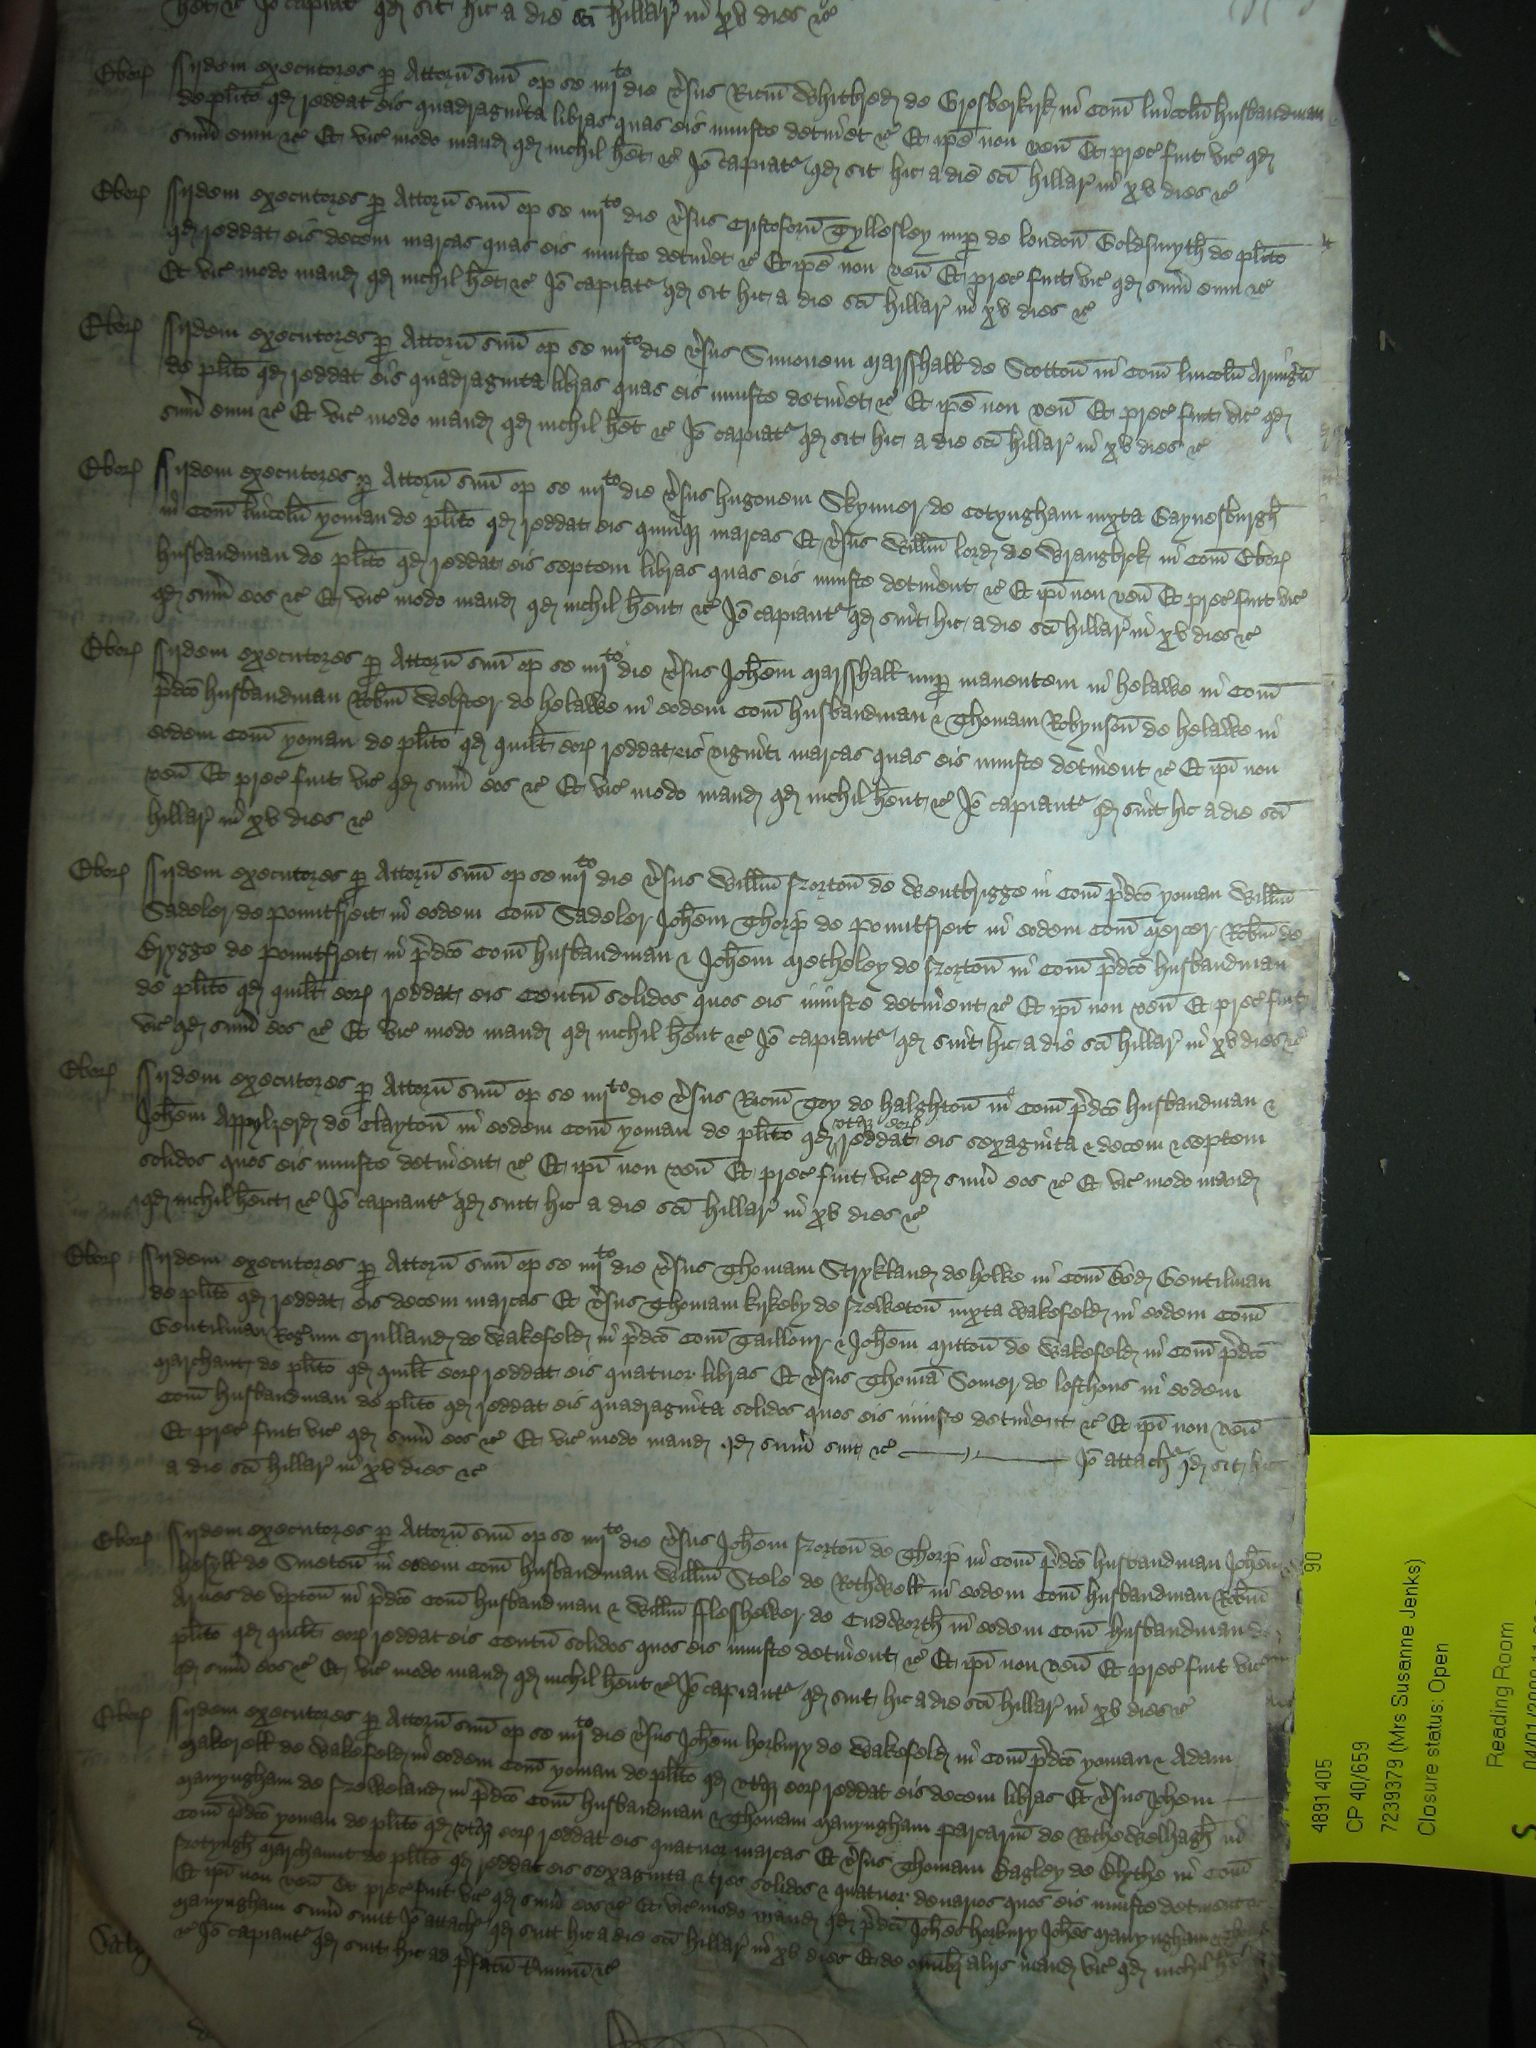 hẽt &c Jõ capiatr qd sit hic a die sci hillar in xv dies &c
Ebor Iijdem executores p Attorñ suũ op se iiijto die v̉sus Ricũ Whitbred de Grosberkirk in Com̃ lincolñ husbandman
de pl̃ito qd reddat eis quadraginta libras quas eis iniuste detinet &c Et ip̃e non veñ Et prec̃ fuit vic̃ qd
sum̃ eum &c Et vic̃ modo mand qd nichil hẽt &c Jõ capiatr qd sit hic a die sci hillar in xv dies &c
Ebor Iijdem executores p Attorñ suũ op se iiijto die v̉sus Cristoforũ Tyllesley nup de londoñ Goldsmyth de pl̃ito
qd reddat eis decem marcas quas eis iniuste detinet &c Et ip̃e non veñ Et prec̃ fuit vic̃ qd sum̃ eum &c
Et vic̃ modo mand qd nichil hẽt &c Jõ capiatr qd sit hic a die sci hillar in xv dies &c
Ebor Iijdem executores p Attorñ suũ op se iiijto die v̉sus Simonem Marsshall de Scottoñ in Com̃ lincolñ Armigũ
de pl̃ito qd reddat eis quadraginta libras quas eis iniuste detinet &c Et ip̃e non veñ Et prec̃ fuit vic̃ qd
sum̃ eum &c Et vic̃ modo mand qd nichil hẽt &c Jõ capiatr qd sit hic a die sci hillar in xv dies &c
Ebor Iijdem executores p Attorñ suũ op se iiijto die v̉sus hugonem Skynner de Cotyngham iuxta Gaynesburgh
in Com̃ lincolñ yoman de pl̃ito qd reddat eis quinq marcas Et v̉sus Will̃m lord de Wrangbrok in Com̃ Ebor
husbandman de pl̃ito qd reddat eis septem libras quas eis iniuste detinent &c Et ip̃i non veñ Et prec̃ fuit vic̃
qd sum̃ eos &c Et vic̃ modo mand qd nichil hẽnt &c Jõ capiantr qd sint hic a die sci hillar in xv dies &c
Ebor Iijdem executores p Attorñ suũ op se iiijto die v̉sus Joh̃em Marsshall nup manentem in helawe in Com̃
p̃dc̃o husbandman Rob̃m Webster de helawe in eodem Com̃ husbandman & Thomam Robynsoñ de helawe in
eodem Com̃ yoman de pl̃ito qd quil̃t eor reddat eis viginti marcas quas eis iniuste detinent &c Et ip̃i non
veñ Et prec̃ fuit vic̃ qd sum̃ eos &c Et vic̃ modo mand qd nichil hẽnt &c Jõ capiantr qd sint hic a die sci
hillar in xv dies &c
Ebor Iijdem executores p Attorñ suũ op se iiijto die v̉sus Will̃m ffrortoñ de Wentbrigge in Com̃ p̃dc̃o yoman Will̃m
Sadeler de Pountfreit in eodem Com̃ Sadeler Joh̃em Thorp de Pountfreit in eodem Com̃ Mercer Rob̃m de
Brygge de Pountfreit in p̃dc̃o Com̃ husbandman & Joh̃em Metheley de ffrortoñ in Com̃ p̃dc̃o husbandman
de pl̃ito qd quil̃t eor reddat eis Centũ solidos quos eis iniuste detinent &c Et ip̃i non veñ Et prec̃ fuit
vic̃ qd sum̃ eos &c Et vic̃ modo mand qd nichil hẽnt &c Jõ capiantr qd sint hic a die sci hillar in xv dies &c
Ebor Iijdem executores p Attorñ suũ op se iiijto die v̉sus Ricũ Toy de halghtoñ in Com̃ p̃dc̃o husbandman &
Joh̃em Appylzerd de Claytoñ in eodem Com̃ yoman de pl̃ito qd utq eor reddat eis sexaginta & decem & septem
solidos quos eis iniuste detinent &c Et ip̃i non veñ Et prec̃ fuit vic̃ qd sum̃ eos &c Et vic̃ modo mand
qd nichil hẽnt &c Jõ capiantr qd sint hic a die sci hillar in xv dies &c
Ebor Iijdem executores p Attorñ suũ op se iiijto die v̉sus Thomam Strykland de holbe in Com̃ Gentilman
de pl̃ito qd reddat eis decem marcas Et v̉sus Thomam Kyrkeby de iuxta Wakefeld in eodem Com̃
Gentilman Rogerum Mulland de Wakefeld in p̃dc̃o Com̃ Taillour & Joh̃em Mittoñ de Wakefeld in Com̃ p̃dc̃o
Marchant de pl̃ito qd quil̃t eor reddat eis quatuor libras Et v̉sus Thomã Somer de lofthous in eodem
Com̃ husbandman de pl̃ito qd reddat eis quadraginta solidos quos eis iniuste detinent &c Et ip̃i non veñ
Et prec̃ fuit vic̃ qd sum̃ eos &c Et vic̃ modo mand qd sum̃ sunt &c Jõ attachr qd sit hic
a die sci hillar in xv dies &c
Ebor Iijdem executores p Attorñ suũ op se iiijto die v̉sus Joh̃em ffrortoñ de Thorp in Com̃ p̃dc̃o husbandman Joh̃em
hesyll de Smetoñ in eodem Com̃ husbandman Will̃m Stele de Rothwell in eodem Com̃ husbandman Rob̃m
Arnes de Uptoñ in p̃dc̃o Com̃ husbandman & Will̃m fflesshewer de Cudworth in eodem Com̃ husbandman de
pl̃ito qd quil̃t eor reddat eis Centũ solidos quos eis iniuste detinent &c Et ip̃i non veñ Et prec̃ fuit vic̃
qd sum̃ eos &c Et vic̃ modo mand qd nichil hẽnt &c Jõ capiantr qd sint hic a die sci hillar in xv dies &c
Ebor Iijdem executores p Attorñ suũ op se iiijto die v̉sus Joh̃em horbury de Wakefeld in Com̃ p̃dc̃o yoman & Adam
Makerell de Wakefeld in eodem Com̃ yoman de pl̃ito qd utq eor reddat eis decem libras Et v̉sus Joh̃em
Manyngham de in p̃dc̃o Com̃ husbandman & Thomam Manyngham Parcariũ de Rothewelhagh in
Com̃ p̃dc̃o yoman de pl̃ito qd utq eor reddat eis quatuor marcas Et v̉sus Thomam Bagley de Blythe in Com̃
Notyngh Marchaunt de pl̃ito qd reddat eis sexaginta & tres solidos & quatuor denarios quos eis iniuste detinent &c
Et ip̃i non veñ Et prec̃ fuit vic̃ qd sum̃ eos &c Et vic̃ modo mand qd p̃dc̃i Joh̃es horbury Joh̃es Manyngham
Manyngham sum̃ sunt Jõ attachr qd sint hic a die sci hillar in xv dies Et de omib3 aliis mand vic̃ qd nichil
&c Jõ capiantr qd sint hic ad p̃fatũ t̃minũ &c
90
4891405
CP 40/659
7239379 (Mrs Susanne Jenks)
Closure status: Open
Reading Room